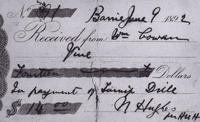 No 91 Barrie June 9 1892
Received from Wm Cowan
Vine
Fourteen Dollars
In payment of Farmie Drill
$ 14.00 N Hughes
per H u H